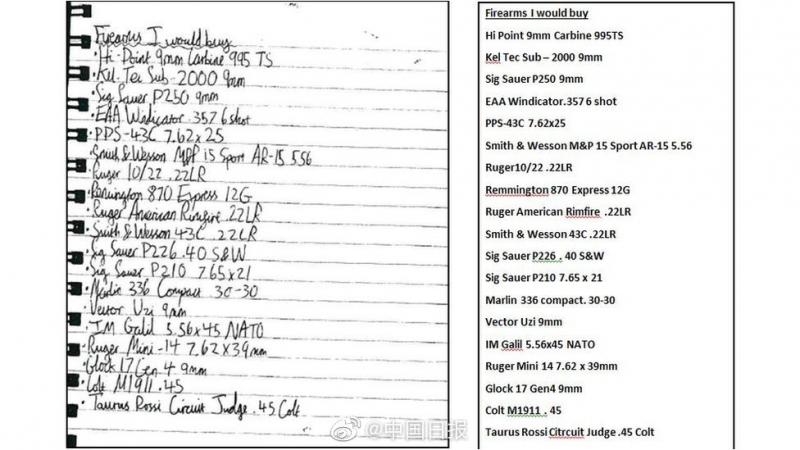 Firearms I would buy
• Hi-Point 9mm Carbine 995 TS
• Kel-Tec Sub-2000 9mm
• Sig Sauer P250 9mm
• EAA Windicator .357 6 shot
• PPS-43C 7.62x25
• Smith & Wesson M&P 15 Sport AR-15 5.56
• Ruger 10/22 .22LR
• Remington 870 Express 12G
• Ruger American Rimfire .22LR
• Smith & Wesson 43C .22LR
• Sig Sauer P226 .40 S&W
• Sig Sauer P210 7.65x21
• Marlin 336 Compact 30-30
• Vector Uzi 9mm
• IM Galil 5.56x45 NATO
• Ruger Mini-14 7.62x39mm
• Glock 17 Gen 4 9mm
• Colt M1911 .45
• Taurus Rossi Circuit Judge .45 Colt
@中国日报
Firearms I would buy
Hi Point 9mm Carbine 995TS
Kel Tec Sub – 2000 9mm
Sig Sauer P250 9mm
EAA Windicator.357 6 shot
PPS-43C 7.62x25
Smith & Wesson M&P 15 Sport AR-15 5.56
Ruger10/22 .22LR
Remmington 870 Express 12G
Ruger American Rimfire .22LR
Smith & Wesson 43C .22LR
Sig Sauer P226 . 40 S&W
Sig Sauer P210 7.65 x 21
Marlin 336 compact. 30-30
Vector Uzi 9mm
IM Galil 5.56x45 NATO
Ruger Mini 14 7.62 x 39mm
Glock 17 Gen4 9mm
Colt M1911 . 45
Taurus Rossi Citrcuit Judge .45 Colt